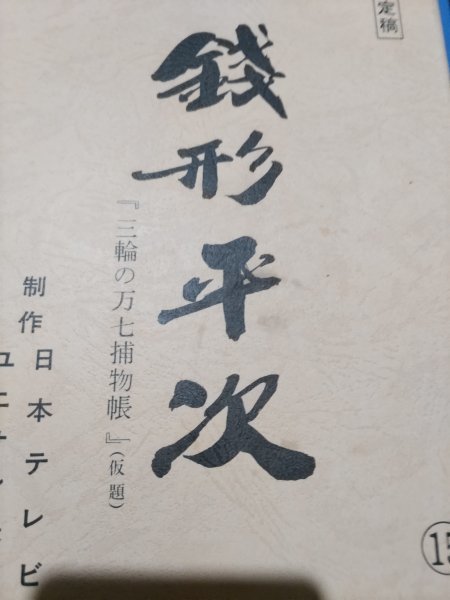 定稿
錢形平次
『三輪の万七捕物帳』(仮題)
制作 日本テレビ
ユニオン